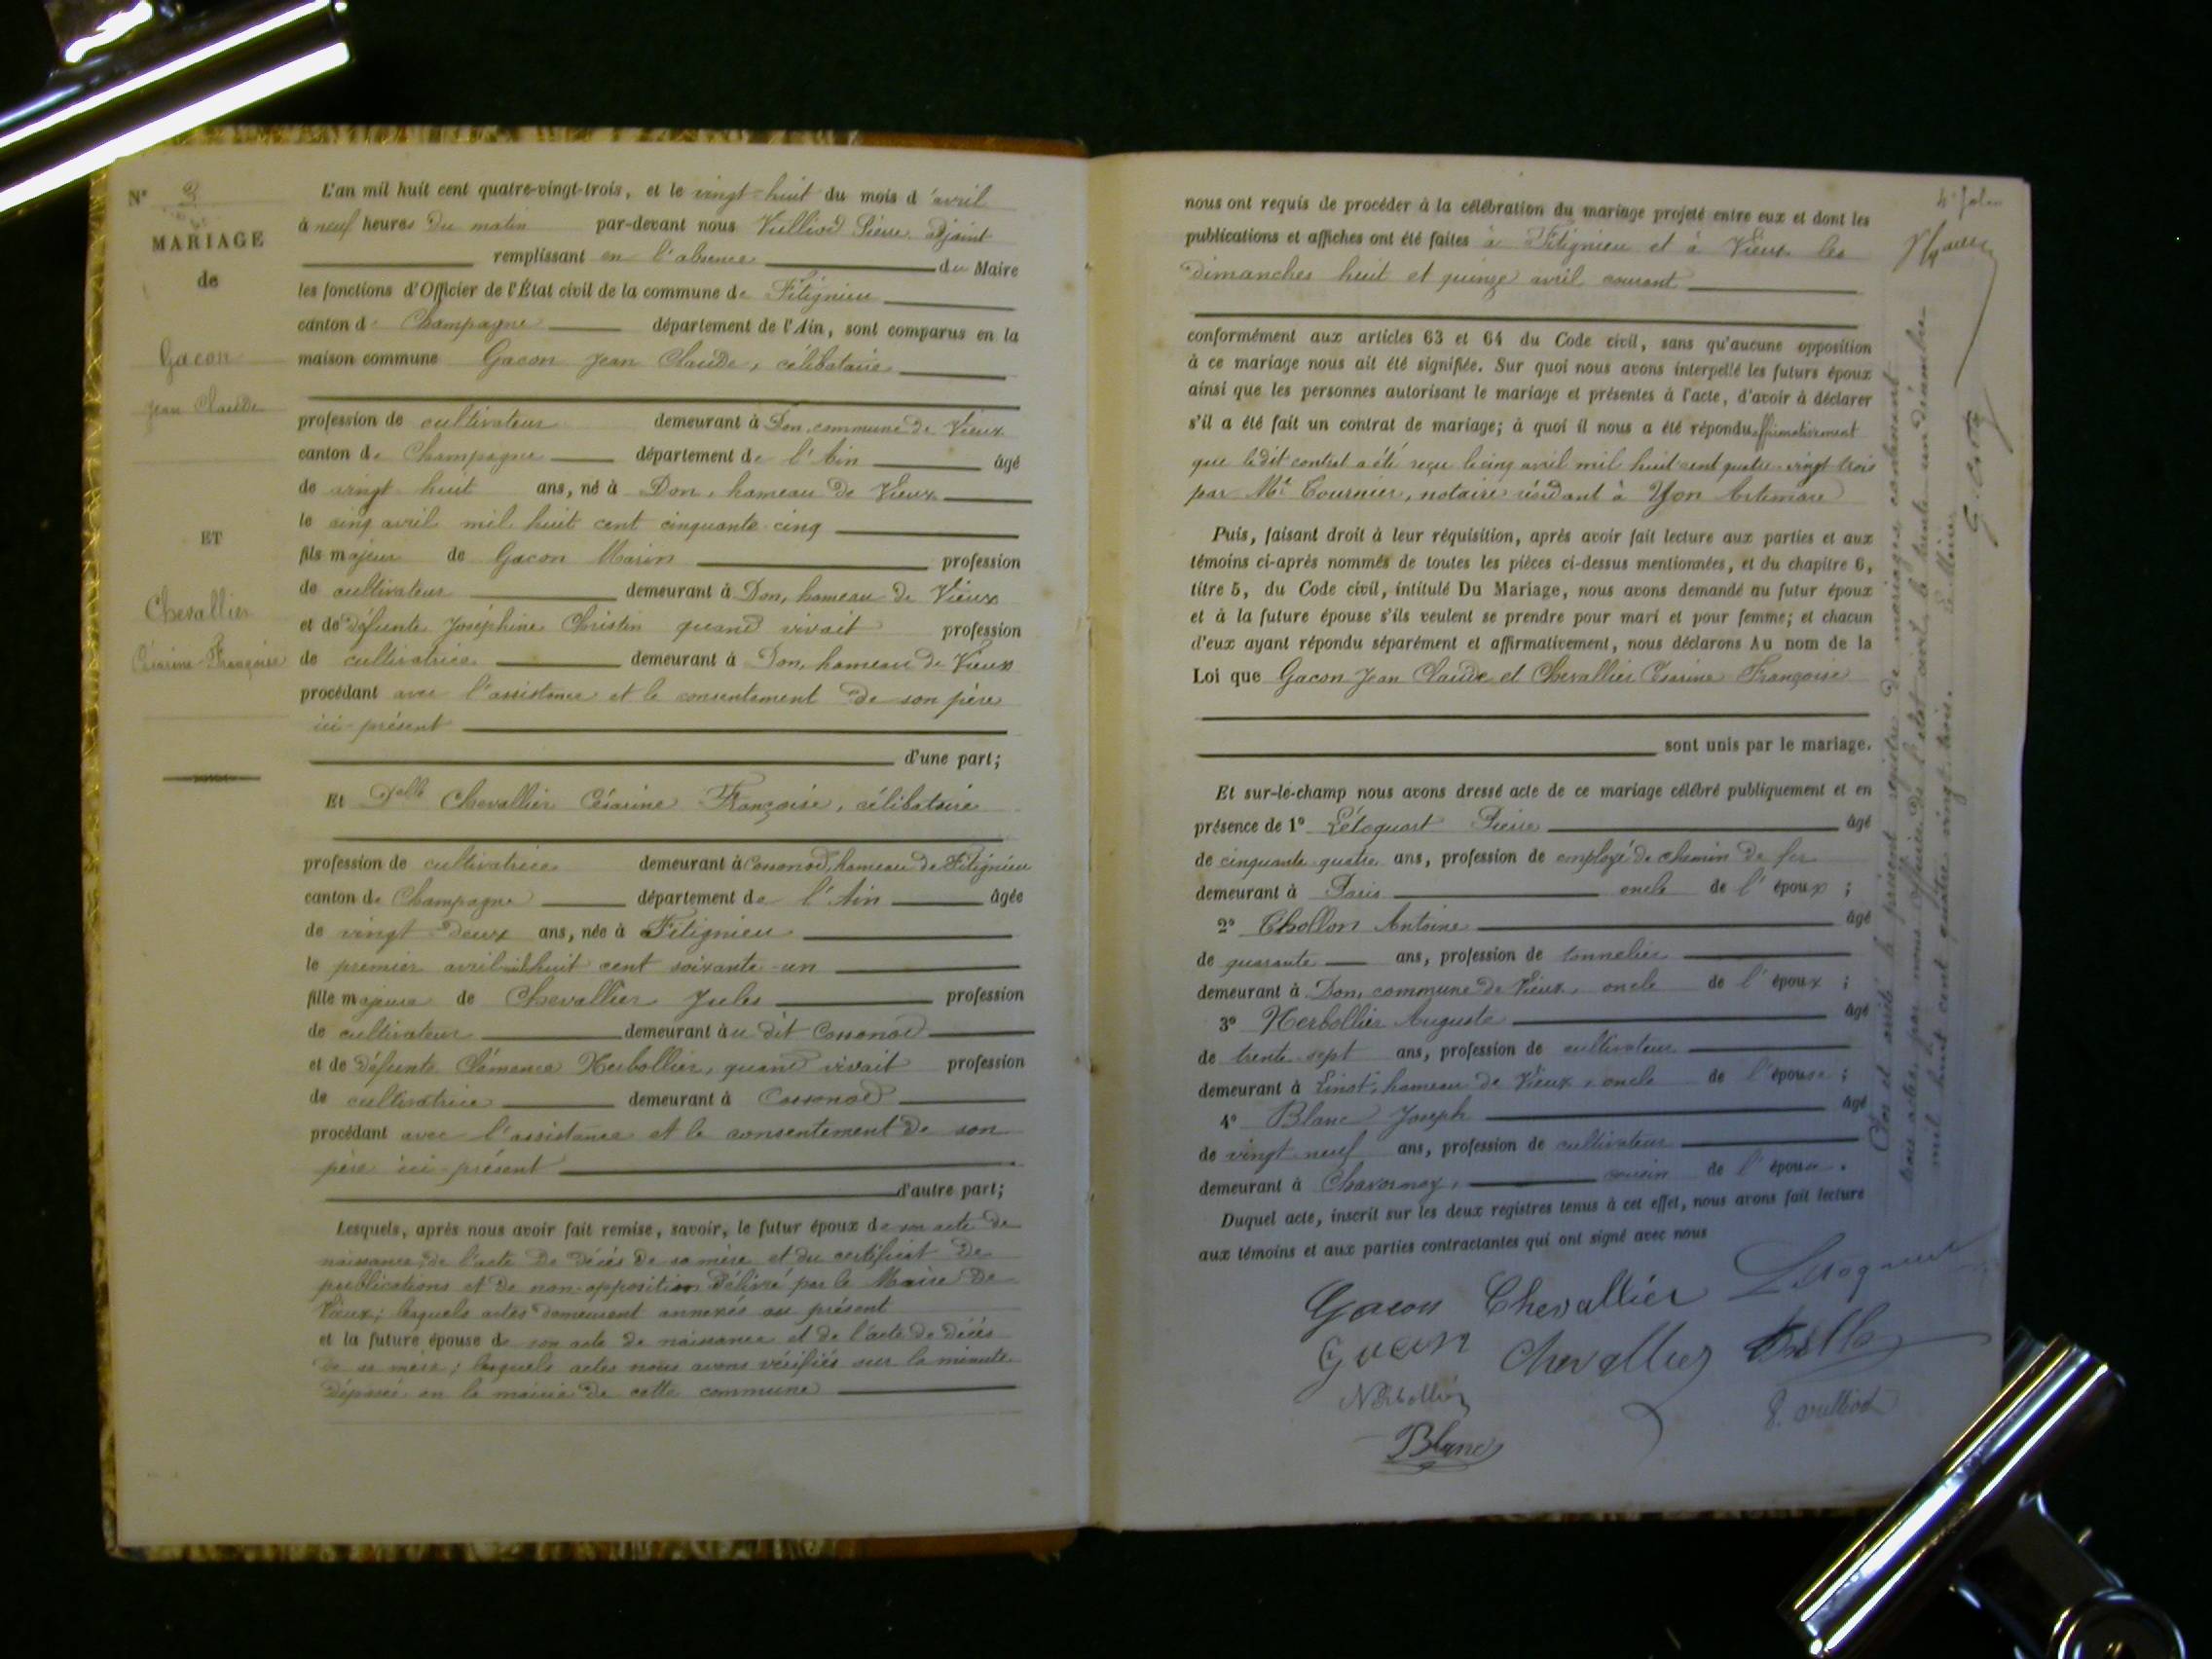 N° 3
MARIAGE
de
Gacon
Jean Claude
ET
Chevallier
Césarine Françoise
L'an mil huit cent quatre-vingt-trois, et le vingt-huit du mois d'avril
à neuf heures du matin par-devant nous Vulliod Pierre adjoint
remplissant en l'absence du Maire
les fonctions d'Officier de l'État civil de la commune de Fitignieu
canton de Champagne département de l'Ain, sont comparus en la
maison commune Gacon Jean Claude, célibataire
profession de cultivateur demeurant à Don, commune de Vieux
canton de Champagne département de l'Ain âgé
de vingt huit ans, né à Don, hameau de Vieux
le cinq avril mil huit cent cinquante cinq
fils majeur de Gacon Marin profession
de cultivateur demeurant à Don, hameau de Vieux
et de défunte Joséphine Christin quand vivait profession
de cultivatrice demeurant à Don, hameau de Vieux
procédant avec l'assistance et le consentement de son père
ici présent
d'une part;
Et Delle Chevallier Césarine Françoise, célibataire
profession de cultivatrice demeurant à Cossonod, hameau de Fitignieu
canton de Champagne département de l'Ain âgée
de vingt-deux ans, née à Fitignieu
le premier avril mil huit cent soixante-un
fille majeure de Chevallier Jules profession
de cultivateur demeurant au dit Cossonod
et de défunte Clémence Herbollier, quand vivait profession
de cultivatrice demeurant à Cossonod
procédant avec l'assistance et le consentement de son
père ici présent
d'autre part;
Lesquels, après nous avoir fait remise, savoir, le futur époux de son acte de
naissance, de l'acte de décès de sa mère et du certificat de
publications et de non-opposition délivré par le Maire de
Vieux; lesquels actes demeurent annexés au présent
et la future épouse de son acte de naissance et de l'acte de décès
de sa mère; lesquels actes nous avons vérifiés sur la minute
déposée en la mairie de cette commune
nous ont requis de procéder à la célébration du mariage projeté entre eux et dont les
publications et affiches ont été faites à Fitignieu et à Vieux les
dimanches huit et quinze avril courant
conformément aux articles 63 et 64 du Code civil, sans qu'aucune opposition
à ce mariage nous ait été signifiée. Sur quoi nous avons interpellé les futurs époux
ainsi que les personnes autorisant le mariage et présentes à l'acte, d'avoir à déclarer
s'il a été fait un contrat de mariage; à quoi il nous a été répondu affirmativement
que ledit contrat a été reçu le cinq avril mil huit cent quatre-vingt trois
par Me Tournier, notaire résidant à Yon Artemare
Puis, faisant droit à leur réquisition, après avoir fait lecture aux parties et aux
témoins ci-après nommés de toutes les pièces ci-dessus mentionnées, et du chapitre 6,
titre 5, du Code civil, intitulé Du Mariage, nous avons demandé au futur époux
et à la future épouse s'ils veulent se prendre pour mari et pour femme; et chacun
d'eux ayant répondu séparément et affirmativement, nous déclarons Au nom de la
Loi que Gacon Jean Claude et Chevallier Césarine Françoise
sont unis par le mariage.
Et sur-le-champ nous avons dressé acte de ce mariage célébré publiquement et en
présence de 1° Létoquart Pierre âgé
de cinquante-quatre ans, profession de employé de chemin de fer
demeurant à Paris oncle de l'époux;
2° Chollon Antoine âgé
de quarante ans, profession de tonnelier
demeurant à Don, commune de Vieux, oncle de l'époux;
3° Herbollier Auguste âgé
de trente-sept ans, profession de cultivateur
demeurant à Linot, hameau de Vieux, oncle de l'épouse;
4° Blanc Joseph âgé
de vingt neuf ans, profession de cultivateur
demeurant à Chavornay, cousin de l'épouse.
Duquel acte, inscrit sur les deux registres tenus à cet effet, nous avons fait lecture
aux témoins et aux parties contractantes qui ont signé avec nous
Gacon Chevallier Letoquart
Gacon Chevallier
Herbollier P. Vulliod
Blanc
Clos et arrêté le présent registre de mariages contenant
trois actes, par nous officier de l'état civil, le trente un décembre
mil huit cent quatre vingt trois.
Le Maire